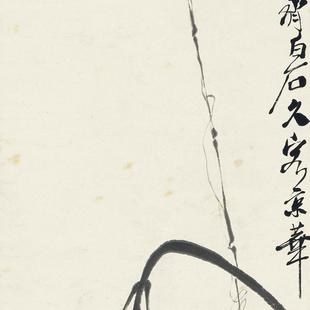 白石久客京華